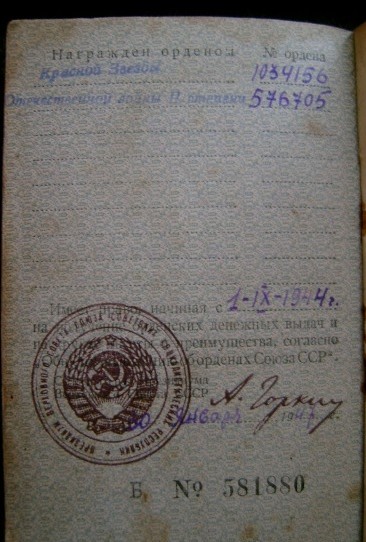 Награжден орденом № ордена
Красной Звезды 1034156
Отечественной войны II степени 576705
Имеет право начиная с 1-IX-1944 г.
на денежных выдач и
преимущества, согласно
орденах Союза ССР".
ССР А. Горкин
30 Января 194 г.
Б № 581880
ПРЕЗИДИУМ ВЕРХОВНОГО СОВЕТА СОЮЗА СОВЕТСКИХ СОЦИАЛИСТИЧЕСКИХ РЕСПУБЛИК